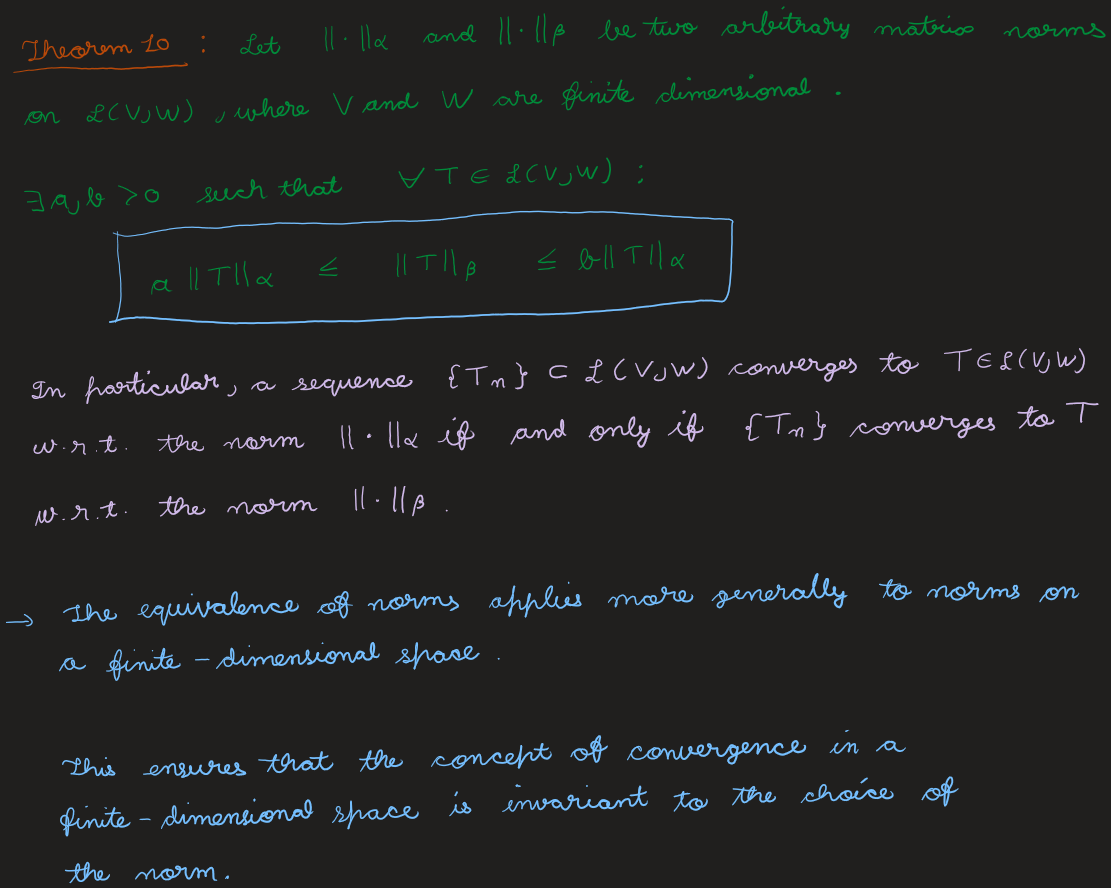 Theorem 10 : Let ||·||α and ||·||β be two arbitrary matrix norms
on ℒ(V,W), where V and W are finite dimensional.
∃ a,b >0 such that ∀ T ∈ ℒ(V,W) :
a ||T||α ≤ ||T||β ≤ b||T||α
In particular, a sequence {Tn} ⊂ ℒ(V,W) converges to T∈ℒ(V,W)
w.r.t. the norm ||·||α if and only if {Tn} converges to T
w.r.t. the norm ||·||β .
→ The equivalence of norms applies more generally to norms on
a finite-dimensional space.
This ensures that the concept of convergence in a
finite-dimensional space is invariant to the choice of
the norm.